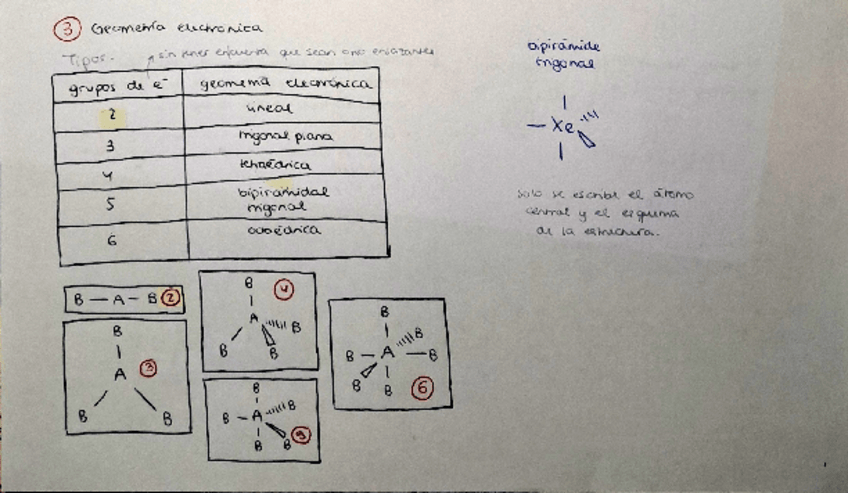 3 Geometría electrónica
Tipos. sin tener en cuenta que sean o no enlazantes
grupos de e⁻ geometría electrónica
2 lineal
3 trigonal plana
4 tetraédrica
5 bipiramidal
trigonal
6 octaédrica
bipirámide
trigonal
Xe
solo se escribe el átomo
central y el esquema
de la estructura.
B — A — B 2
B
A 3
B B
B 4
A B
B B
B
B A B
B B 5
B
B
B A B
B B 6